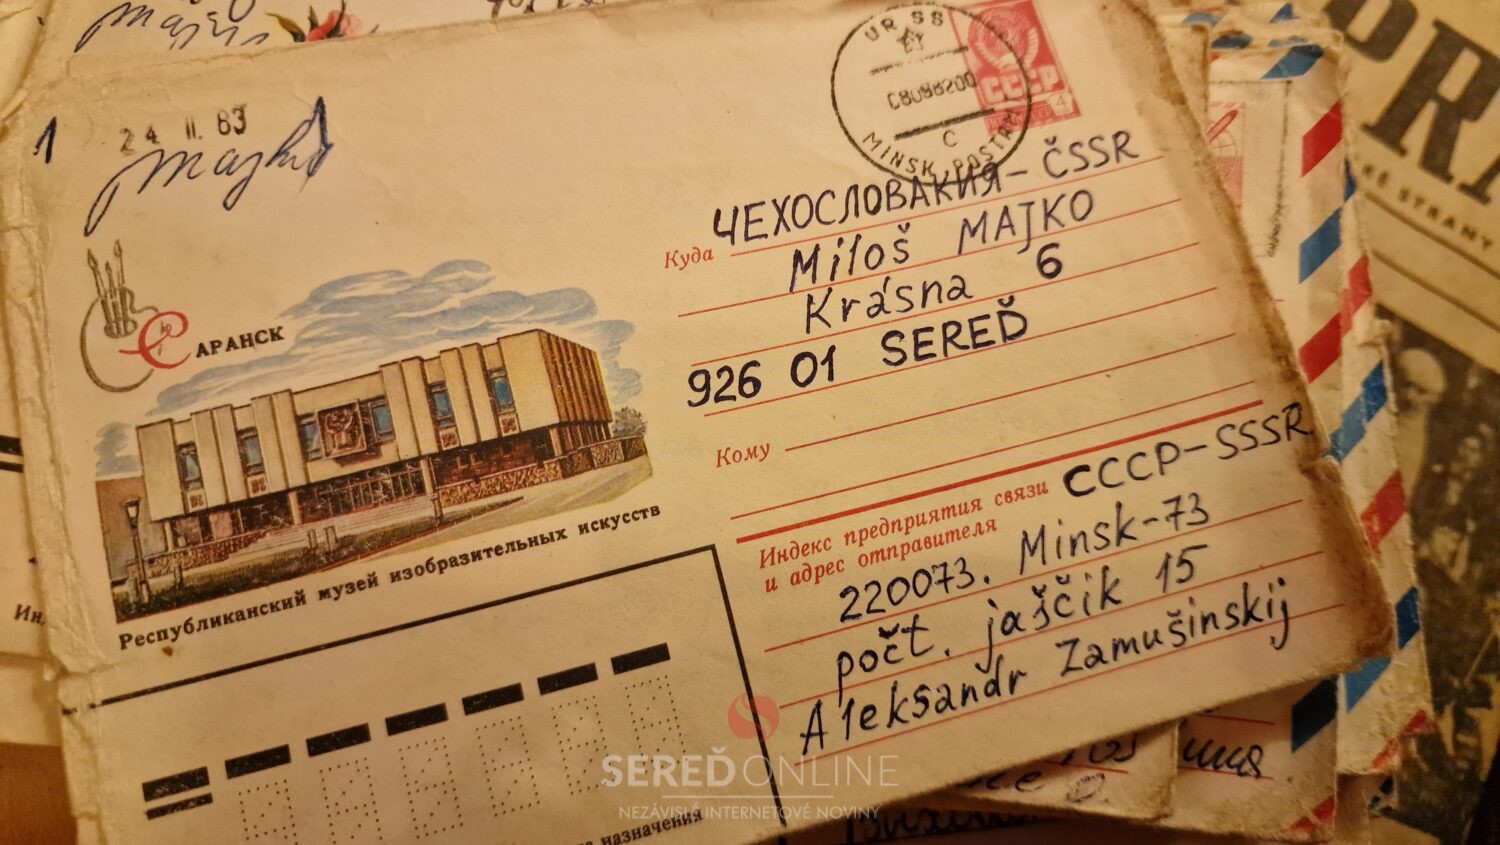 1
24 II. 83
Majko
UR SS
08088200
C
MINSK POSTAMT
СССР
4
Куда
ЧЕХОСЛОВАКИЯ – ČSSR
Miloš MAJKO
Krásna 6
926 01 SEREĎ
Кому
Индекс предприятия связи
и адрес отправителя
СССР – SSSR
220073. Minsk-73
počt. jaščik 15
Aleksandr Zamušinskij
САРАНСК
Республиканский музей изобразительных искусств
назначения
SEREĎ ONLINE
NEZÁVISLÉ INTERNETOVÉ NOVINY
STRANY